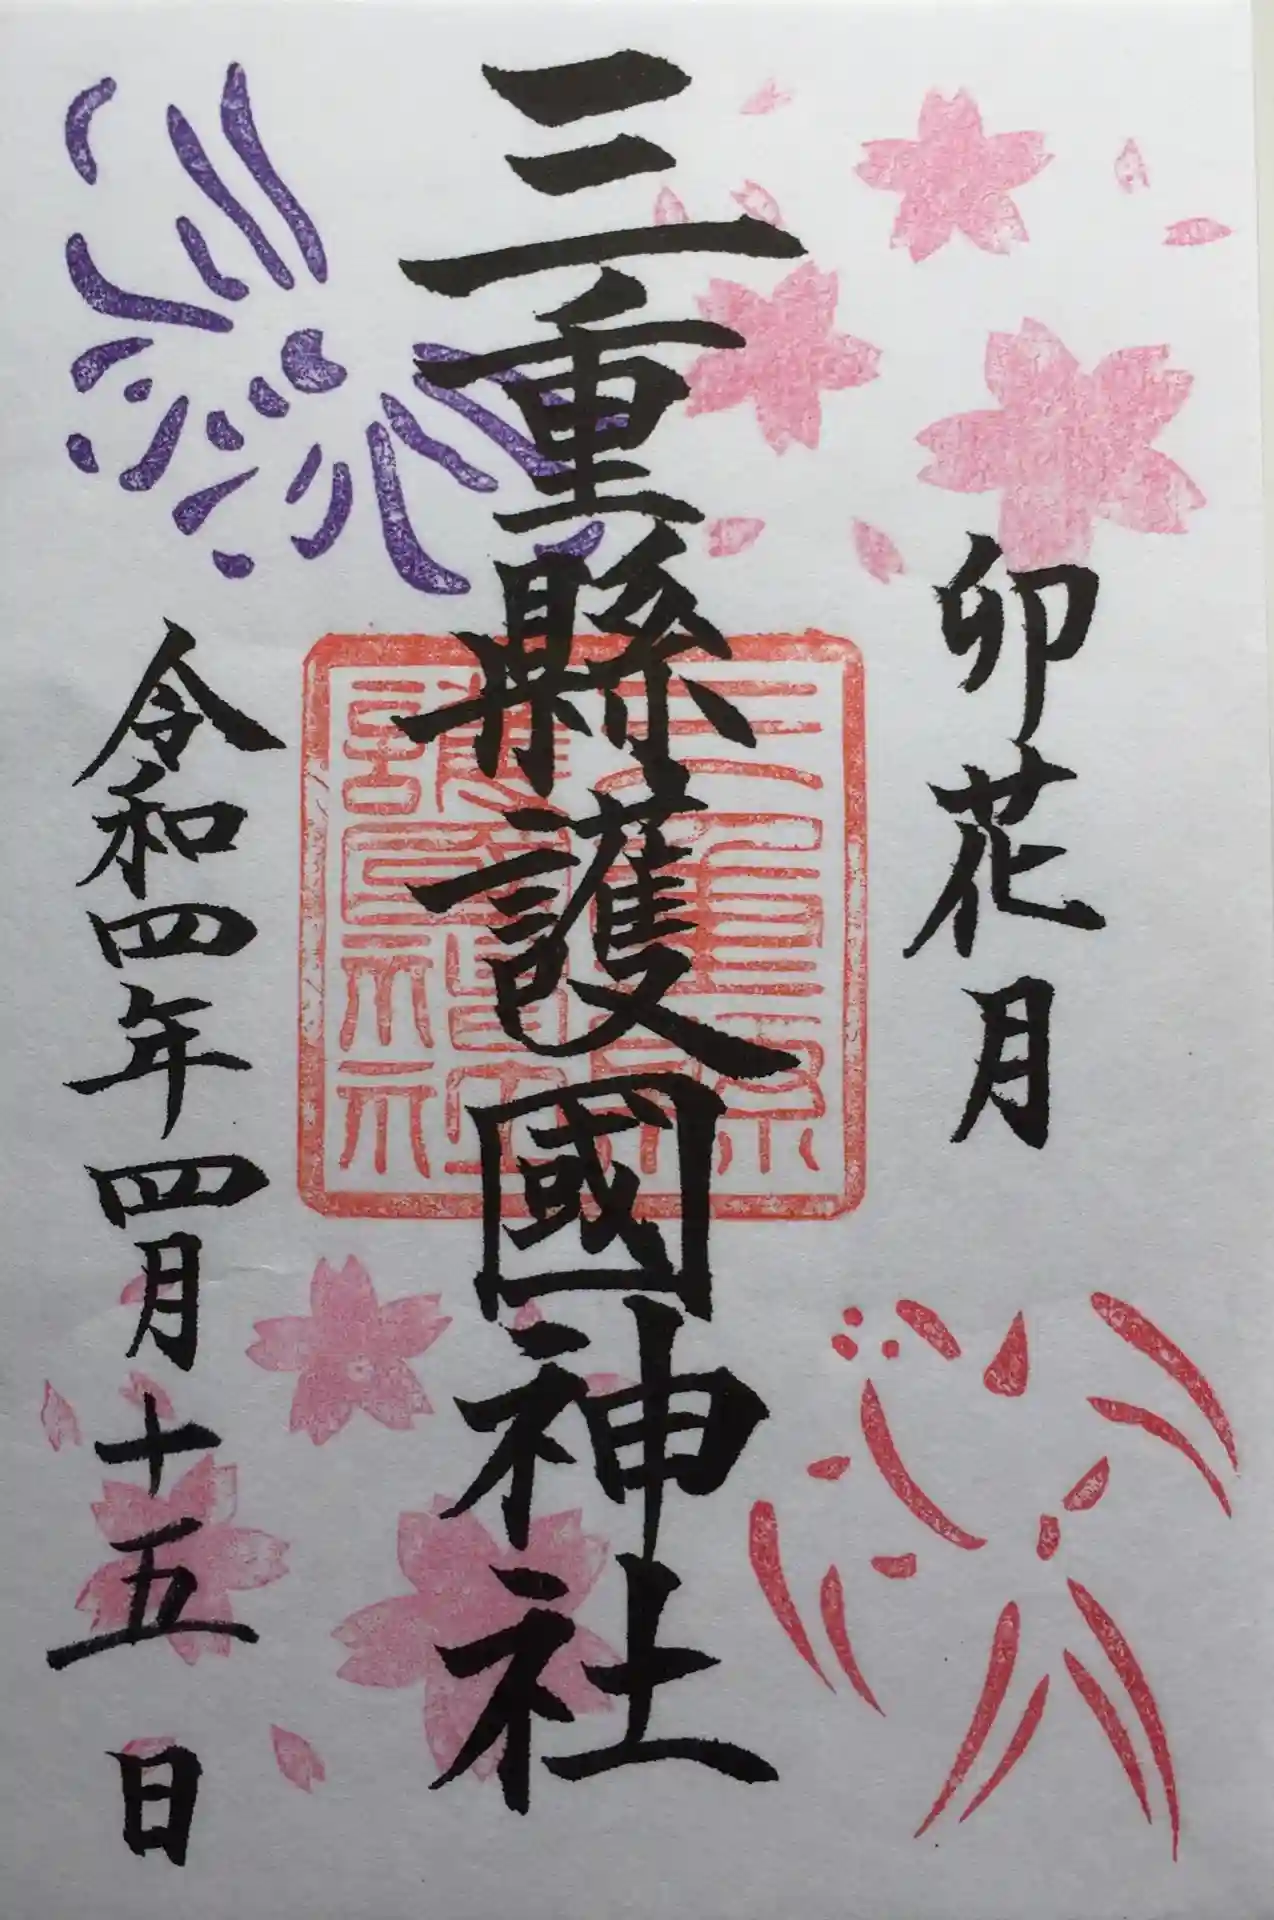 卯花月
三重縣護國神社
三重縣護國神社
令和四年四月十五日